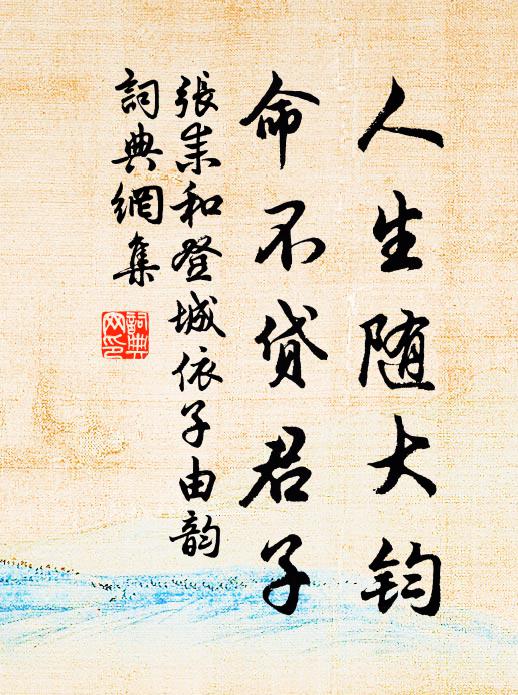 人生随大钧
命不贷君子
張耒和登城依子由韵
詞典網集
詞典网印